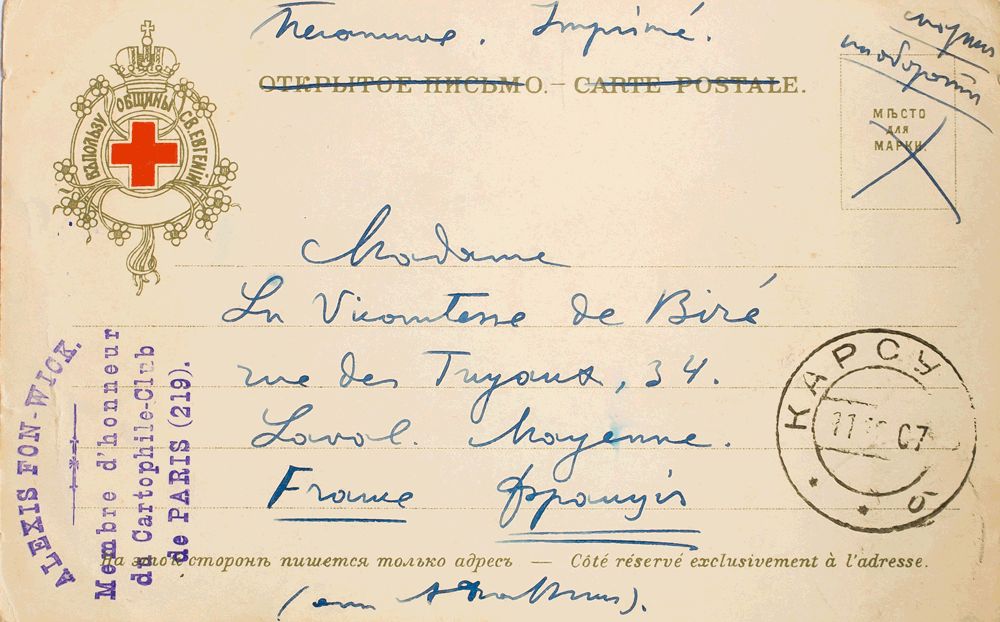 Печатное. Imprimé.
марки
на обороте
ОТКРЫТОЕ ПИСЬМО. — CARTE POSTALE.
ВЪ ПОЛЬЗУ ОБЩИНЫ СВ. ЕВГЕНІИ
МѢСТО
ДЛЯ
МАРКИ.
Madame
La Vicomtesse de Biré
rue des Tuyaux, 34.
Laval. Mayenne.
France Франція
ALEXIS FON-WICK.
Membre d'honneur
du Cartophile-Club
de PARIS (219).
КАРСУ
11 07
б
На этой сторонѣ пишется только адресъ — Côté réservé exclusivement à l'adresse.